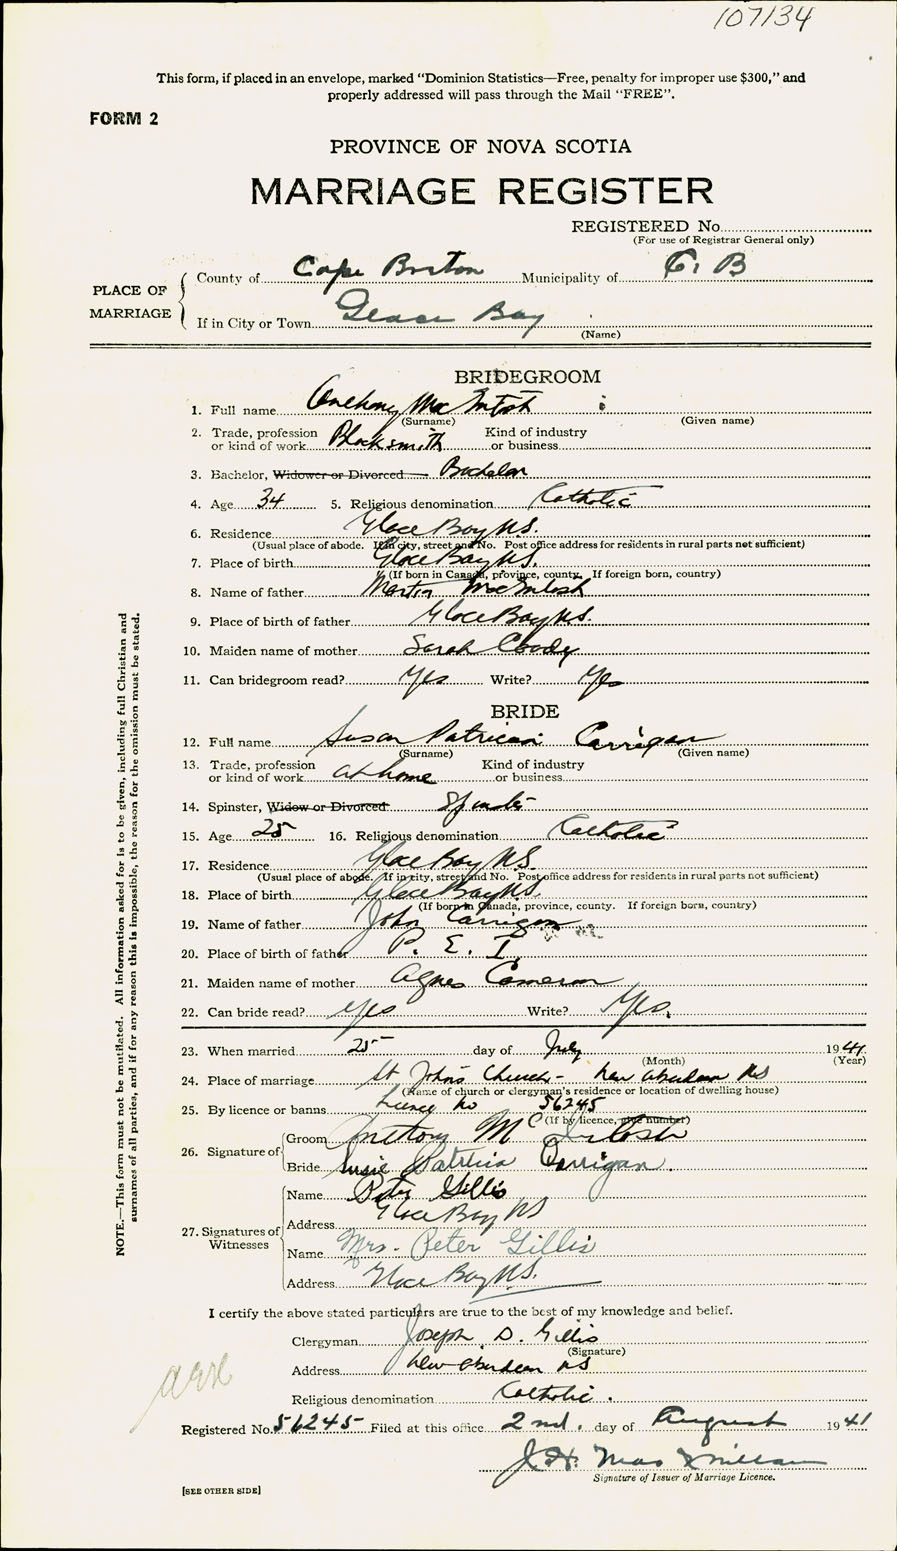 107134
This form, if placed in an envelope, marked "Dominion Statistics—Free, penalty for improper use $300," and
properly addressed will pass through the Mail "FREE".
FORM 2
PROVINCE OF NOVA SCOTIA
MARRIAGE REGISTER
REGISTERED No.
(For use of Registrar General only)
PLACE OF MARRIAGE
County of Cape Breton Municipality of C. B
If in City or Town Glace Bay
(Name)
BRIDEGROOM
1. Full name Anthony MacIntosh
(Surname) (Given name)
2. Trade, profession or kind of work Blacksmith Kind of industry or business
3. Bachelor, Widower or Divorced Bachelor
4. Age 34 5. Religious denomination Catholic
6. Residence Glace Bay N.S.
(Usual place of abode. If in city, street and No. Post office address for residents in rural parts not sufficient)
7. Place of birth Glace Bay N.S.
(If born in Canada, province, county. If foreign born, country)
8. Name of father Martin MacIntosh
9. Place of birth of father Glace Bay N.S.
10. Maiden name of mother Sarah Coody
11. Can bridegroom read? Yes Write? Yes
BRIDE
12. Full name Susan Patricia Carrigan
(Surname) (Given name)
13. Trade, profession or kind of work at home Kind of industry or business
14. Spinster, Widow or Divorced Spinster
15. Age 25 16. Religious denomination Catholic
17. Residence Glace Bay N.S.
(Usual place of abode. If in city, street and No. Post office address for residents in rural parts not sufficient)
18. Place of birth Glace Bay N.S.
(If born in Canada, province, county. If foreign born, country)
19. Name of father John Carrigan
20. Place of birth of father P. E. I.
21. Maiden name of mother Agnes Cameron
22. Can bride read? Yes Write? Yes.
23. When married 25 day of July 1941
(Month) (Year)
24. Place of marriage St John's Church - New Aberdeen NS
(Name of church or clergyman's residence or location of dwelling house)
25. By licence or banns Licence No 56245
(If by licence, give number)
26. Signature of
Groom Anthony McIntosh
Bride Susie Patricia Carrigan.
27. Signatures of Witnesses
Name Peter Gillis
Address Glace Bay NS
Name Mrs. Peter Gillis
Address Glace Bay N.S.
I certify the above stated particulars are true to the best of my knowledge and belief.
Clergyman Joseph D. Gillis
(Signature)
Address New Aberdeen NS
Religious denomination Catholic.
Registered No. 56245 Filed at this office 2nd. day of August 1941
J. H. MacMillan
Signature of Issuer of Marriage Licence.
[SEE OTHER SIDE]
NOTE.—This form must not be mutilated. All information asked for is to be given, including full Christian and
surnames of all parties, and if for any reason this is impossible, the reason for the omission must be stated.